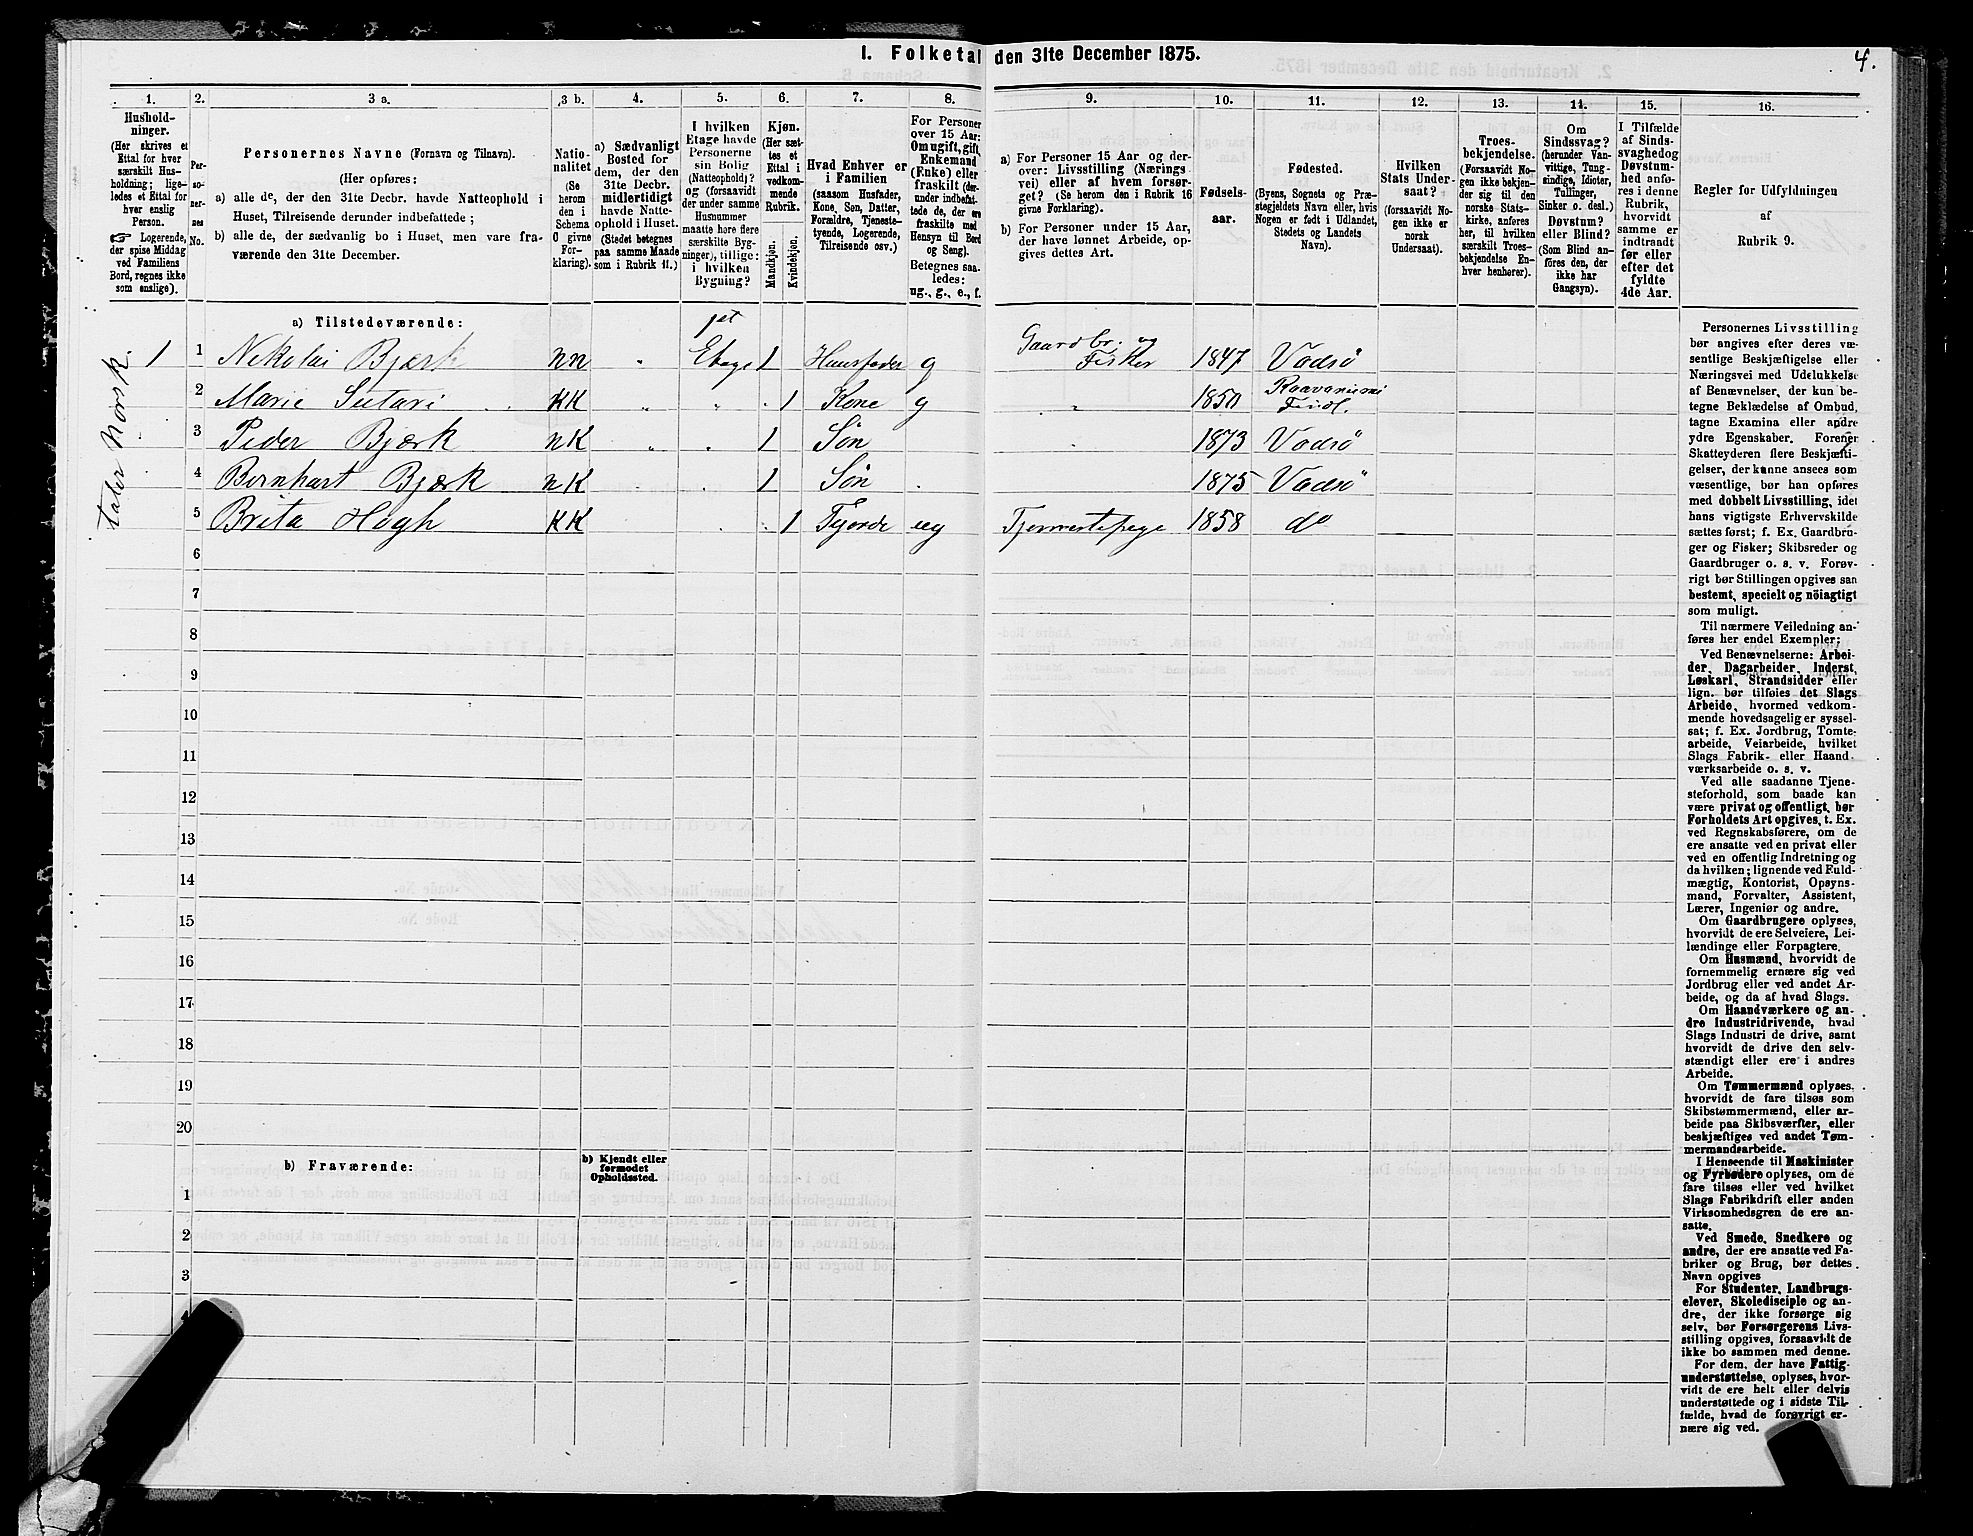 I. Folketal den 31te December 1875.
4.
1.
Hushold-
ninger.
(Her skrives et
Ettal for hver
særskilt Hus-
holdning; lige-
ledes et Ettal for
hver enslig
Person.
☞ Logerende,
der spise Middag
ved Familiens
Bord, regnes ikke
som enslige).
2.
Per-
so-
ner-
nes
No.
3 a.
Personernes Navne (Fornavn og Tilnavn).
(Her opføres:
a) alle de, der den 31te Decbr. havde Natteophold i
Huset, Tilreisende derunder indbefattede;
b) alle de, der sædvanlig bo i Huset, men vare fra-
værende den 31te December.
3 b.
Natio-
nalitet
(Se
herom
den i
Schema
O givne
For-
klaring).
4.
a) Sædvanligt
Bosted for
dem, der den
31te Decbr.
midlertidigt
havde Natte-
ophold i Huset.
(Stedet betegnes
paa samme Maade
som i Rubrik 11.)
5.
I hvilken
Etage havde
Personerne
sin Bolig
(Natteophold)?
og (forsaavidt
der under samme
Husnummer
maatte høre flere
særskilte Byg-
ninger), tillige:
i hvilken
Bygning?
6.
Kjøn.
(Her sæt-
tes et
Ettal i
vedkom-
mende
Rubrik.
Mandkjøn.
Kvindekjøn.
7.
Hvad Enhver er
i Familien
(saasom Husfader,
Kone, Søn, Datter,
Forældre, Tjeneste-
tyende, Logerende,
Tilreisende osv.)
8.
For Personer
over 15 Aar:
Om ugift, gift,
Enkemand
(Enke) eller
fraskilt (der-
under indbefat-
tede de, der ere
fraskilte med
Hensyn til Bord
og Seng).
Betegnes saa-
ledes:
ug., g., e., f.
9.
a) For Personer 15 Aar og der-
over: Livsstilling (Nærings-
vei) eller af hvem forsør-
get? (Se herom den i Rubrik 16
givne Forklaring).
b) For Personer under 15 Aar,
der have lønnet Arbeide, op-
gives dettes Art.
10.
Fødsels-
aar.
11.
Fødested.
(Byens, Sognets og Præ-
stegjeldets Navn eller, hvis
Nogen er født i Udlandet,
Stedets og Landets
Navn).
12.
Hvilken
Stats Under-
saat?
(forsaavidt No-
gen ikke er
norsk
Undersaat).
13.
Troes-
bekjendelse.
(Forsaavidt No-
gen ikke bekjen-
der sig til den
norske Stats-
kirke, anføres
her, til hvilken
særskilt Troes-
bekjendelse En-
hver henhører).
14.
Om
Sindssvag?
(herunder Van-
vittige, Tung-
sindige, Idioter,
Tullinger,
Sinker o. desl.)
Døvstum?
eller Blind?
(Som Blind an-
føres den, der
ikke har
Gangsyn).
15.
I Tilfælde
af Sinds-
svaghed og
Døvstum-
hed anfø-
res i denne
Rubrik,
hvorvidt
samme er
indtraadt
før eller
efter det
fyldte
4de Aar.
16.
Regler for Udfyldningen
af
Rubrik 9.
a) Tilstedeværende:
taler Norsk.
1 1 Nikolai Bjærk nn " 1st Etage 1 Huusfader g Gaardbr. og Fisker 1847 Vadsø
2 Marie Sutari KK " " 1 Kone g " 1850 Finl.
3 Peder Bjærk nK " 1 Søn 1873 Vadsø
4 Bernhart Bjærk nK 1 Søn 1875 Vadsø
5 Brita Høgh KK 1 Tyende ug Tjenestepige 1858 do
6
7
8
9
10
11
12
13
14
15
16
17
18
19
20
b) Fraværende:
b) Kjendt eller
formodet
Opholdssted.
1
2
3
4
Personernes Livsstilling
bør angives efter deres væ-
sentlige Beskjæftigelse eller
Næringsvei med Udelukkelse
af Benævnelser, der kun be-
tegne Beklædelse af Ombud,
tagne Examina eller andre
ydre Egenskaber. Forener
Skatteyderen flere Beskjæfti-
gelser, der kanne ansees som
væsentlige, bør han opføres
med dobbelt Livsstilling, idet
hans vigtigste Erhvervskilde
sættes først; f. Ex. Gaardbru-
ger og Fisker; Skibsreder og
Gaardbruger o. s. v. Forøv-
rigt bør Stillingen opgives saa
bestemt, specielt og nöiagtigt
som muligt.
Til nærmere Veiledning an-
føres her endel Exempler;
Ved Benævnelserne: Arbei-
der, Dagarbeider, Inderst,
Løskarl, Strandsidder eller
lign. bør tilføies det Slags
Arbeide, hvormed vedkom-
mende hovedsagelig er syssel-
sat; f. Ex. Jordbrug, Tomte-
arbeide, Veiarbeide, hvilket
Slags Fabrik- eller Haand-
værksarbeide o. s. v.
Ved alle saadanne Tjene-
steforhold, som baade kan
være privat og offentligt, bør
Forholdets Art opgives, t. Ex.
ved Regnskabsførere, om de
ere ansatte ved en privat eller
ved en offentlig Indretning og
da hvilken; lignende ved Fuld-
mægtig, Kontorist, Opsyns-
mand, Forvalter, Assistent,
Lærer, Ingeniør og andre.
Om Gaardbrugere oplyses,
hvorvidt de ere Selveiere, Lei-
lændinge eller Forpagtere.
Om Husmænd, hvorvidt de
fornemmelig ernære sig ved
Jordbrug eller ved andet Ar-
beide, og da af hvad Slags.
Om Haandværkere og an-
dre Industridrivende, hvad
Slags Industri de drive, samt
hvorvidt de drive den selv-
stændigt eller ere i andres
Arbeide.
Om Tømmermænd oplyses,
hvorvidt de fare tilsøs som
Skibstømmermænd, eller ar-
beide paa Skibsværfter, eller
beskjæftiges ved andet Tøm-
mermandsarbeide.
I Henseende til Maskinister
og Fyrbødere oplyses, om de
fare tilsøs eller ved hvilket
Slags Fabrikdrift eller anden
Virksomhedsgren de ere an-
satte.
Ved Smede, Snedkere og
andre, der ere ansatte ved Fa-
briker og Brug, bør dettes
Navn opgives
For Studenter, Landbrugs-
elever, Skoledisciple og an-
dre, der ikke forsørge sig
selv, bør Forsørgerens Livs-
stilling opgives, forsaavidt de
ikke bo sammen med denne.
For dem, der have Fattig-
understøttelse, oplyses, hvor-
vidt de ere helt eller delvis
understøttede og i sidste Til-
fælde, hvad de forøvrigt er-
nære sig ved.